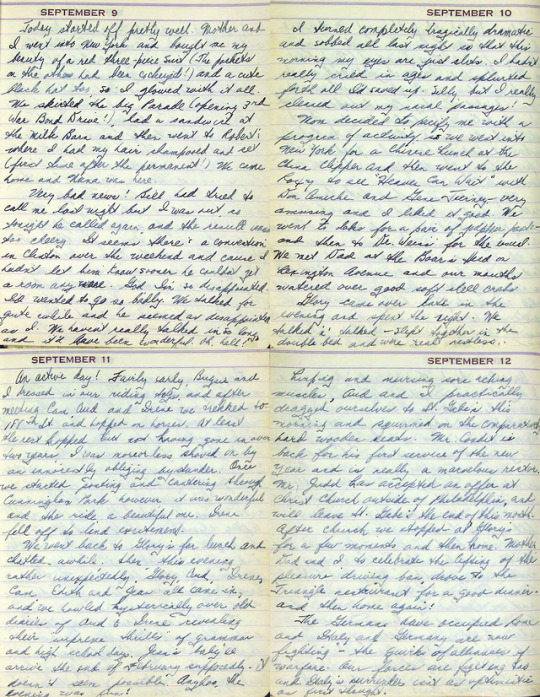 SEPTEMBER 9
Today started off pretty well. Mother and
I went into New York and bought me my
beauty of a red three-piece suit (The pockets
on the others had been cockeyed!) and a cute
black hat too, so I glowed with it all.
We skirted the big Parade (opening 3rd
War Bond Drive!), had a sandwich at
the Milk Barn and then went to Robert's
where I had my hair shampooed and set
(first time after the permanent!) We came
home and Nana was here.
Very bad news! Bill had tried to
call me last night but I was out so
tonight he called again and the result was
too cheery. It seems there's a convention
in Clinton over the weekend and cause I
hadn't let him know sooner he couldn't get
a room any more. God I'm so disappointed.
I'd wanted to go so badly. We talked for
quite awhile and he seemed as disappointed
as I. We haven't really talked in so long
and it'd have been wonderful. Oh, hell!
SEPTEMBER 10
I turned completely tragically dramatic
and sobbed all last night so that this
morning my eyes are just slits. I hadn't
really cried in ages and splurted
forth all I'd saved up. Silly but I really
cleaned out my nasal passages!
Mom decided to pacify me with a
program of activity so we went into
New York for a Chinese lunch at the
China Clipper and then went to the
Roxy to see "Heaven Can Wait" with
Don Ameche and Gene Tierney - very
amusing and I liked it good. We
went to Saks for a pair of
and then to De Pinna for the wool.
We met Dad at the Boar's Head on
Lexington Avenue and our mouths
watered over good soft shell crabs
Glory came over late in the
evening and spent the night. We
talked & talked - slept together in the
double bed and were real restless.
SEPTEMBER 11
An active day! Fairly early, Bugsie and
I dressed in our riding togs, and after
meeting Can, Aud and Irene we trekked to
St. and hopped on horses. At least
the rest hopped but not having gone in over
two years, I was nevertheless shoved on by
an amused & obliging bystander. Once
we started posting and cantering through
Cunningham Park however it was wonderful
and the ride a beautiful one. Irene
fell off to lend excitement.
We went back to Glory's for lunch and
chatted awhile, then this evening
rather unexpectedly, Glory, Aud, Irene,
Can, Edith and Jean all came in,
and we howled hysterically over old
diaries of Aud & Irene revealing
their "supreme thrills" of grammar
and high school days. Jean's baby'll
arrive the end of February supposedly. It
doesn't seem possible! Anyhoo, the
evening was fun!
SEPTEMBER 12
Limping and nursing some aching
muscles, Aud and I practically
dragged ourselves to St. Luke's this
morning and squirmed on the comparatively
hard wooden seats. Mr. Condit is
back for his first service of the new
year and is really a marvelous rector.
Mr. Judd has accepted an offer at
Christ Church outside of Philadelphia and
will leave St. Luke's the end of this month.
After church we stopped at Glory's
for a few moments and then home. Mother
Dad and I, to celebrate the lifting of the
pleasure driving ban, drove to the
Triangle restaurant for a good dinner.
and then home again!
The Germans have occupied Rome
and Italy and Germany are now
fighting - the quirks of alliances of
warfare. Our forces are fighting too
and Italy's surrender isn't as optimistic
as first thought.